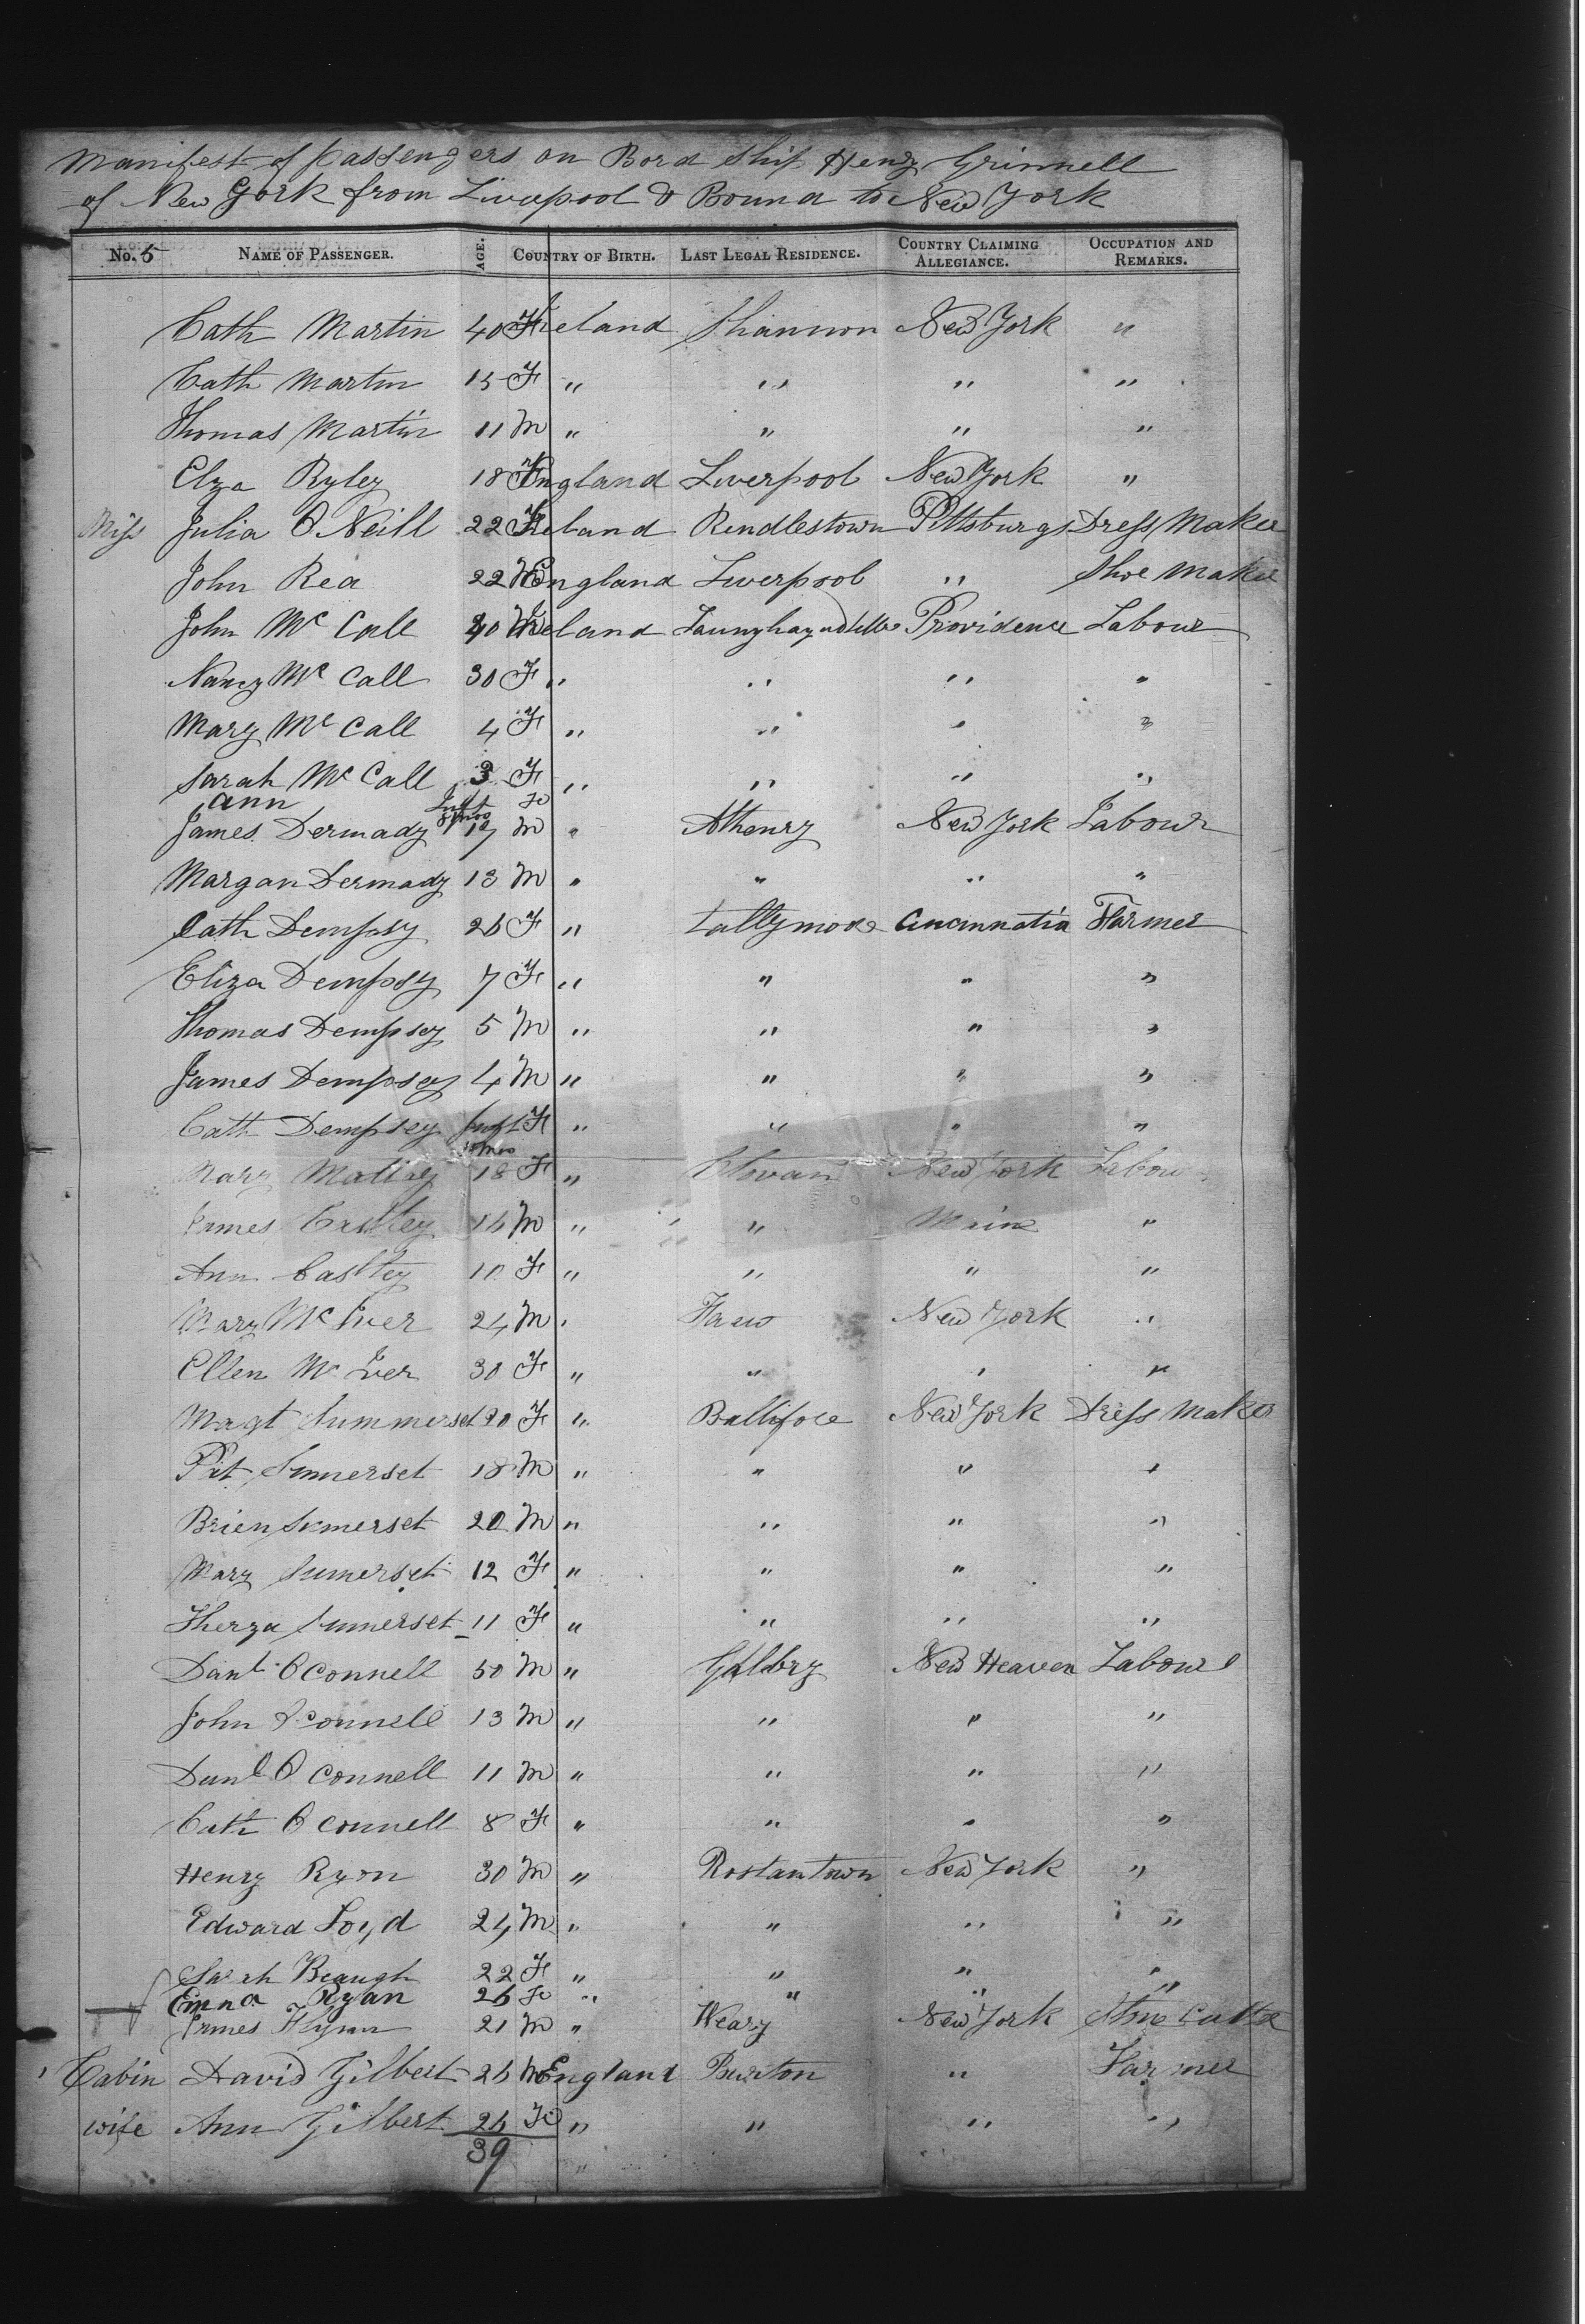 Manifest of passengers on Bord Ship Henry Grinnell
of New York from Liverpool & Bound to New York
No. 5 NAME OF PASSENGER. AGE. COUNTRY OF BIRTH. LAST LEGAL RESIDENCE. COUNTRY CLAIMING ALLEGIANCE. OCCUPATION AND REMARKS.
Cath Martin 40 F Ireland Shannon New York "
Cath Martin 15 F " " " "
Thomas Martin 11 M " " " "
Elza Ryley 18 F England Liverpool New York "
Miss Julia O Neill 22 F Ireland Rendlestown Pittsburgs Dress Maker
John Rea 22 M England Liverpool " Shoe Maker
John Mc Call 40 M Ireland Providence Labour
Nancy Mc Call 30 F " " " "
Mary Mc Call 4 F " " " "
Sarah Mc Call 3 F " " " "
Ann Inft 8 mos F
James Dermady 17 M " Athenry New York Labour
Margan Dermady 13 M " " " "
Cath Dempsy 26 F " Tallymore Cincinnatia Farmer
Eliza Dempsy 7 F " " " "
Thomas Dempsey 5 M " " " "
James Dempsey 4 M " " " "
Cath Dempsey Inft F " " " "
10 mos
Mary 18 F " New York Labour
James Caslley 16 M " " Maine "
Ann Caslley 10 F " " " "
Mary Mc Iver 24 M " New York "
Ellen Mc Iver 30 F " " " "
Magt Summerset 20 F " Ballifore New York Dress Maker
Pat Sumerset 18 M " " " "
Brien Sumerset 20 M " " " "
Mary Sumerset 12 F " " " "
Therza Sumerset 11 F " " " "
Danl O Connell 50 M " Galbry New Heaven Labour
John O Connell 13 M " " " "
Danl O Connell 11 M " " " "
Cath O Connell 8 F " " " "
Henry Ryon 30 M " Rostantown New York "
Edward Loyd 24 M " " " "
Sarah Beaugh 22 F " " " "
Emna Ryan 26 F " " " "
James Flynn 21 M " Weary New York Stone Cutter
Cabin David Gilbert 26 M England Burton " Farmer
wife Ann Gilbert 26 F " " " "
39 "